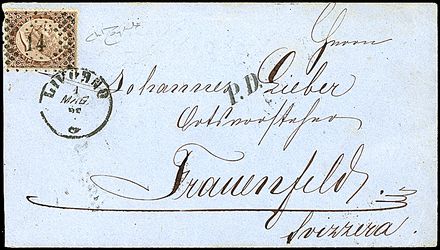 14
LIVORNO
1
MAG
P.D.
Herrn
Johannes Zieber
Ortsvorsteher
Frauenfeld
Svizzera.